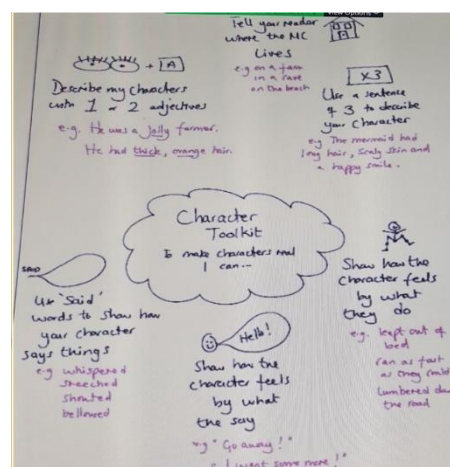 View Options
Tell your reader
where the MC
lives
e.g on a farm
in a cave
on the beach
+ A
Describe my characters
with 1 or 2 adjectives
e.g. He was a jolly farmer.
He had thick, orange hair.
x3
Use a sentence
of 3 to describe
your character
e.g The mermaid had
long hair, scaly skin and
a happy smile.
Character
Toolkit
To make characters real
I can...
SAID
Use 'Said'
words to show how
your character
says things
e.g whispered
screeched
shouted
bellowed
Hello!
Show how the
character feels
by what
the say
e.g "Go away!"
"I want some more!"
Show how the
character feels
by what
they do
e.g. leapt out of
bed
ran as fast
as they could
lumbered down
the road